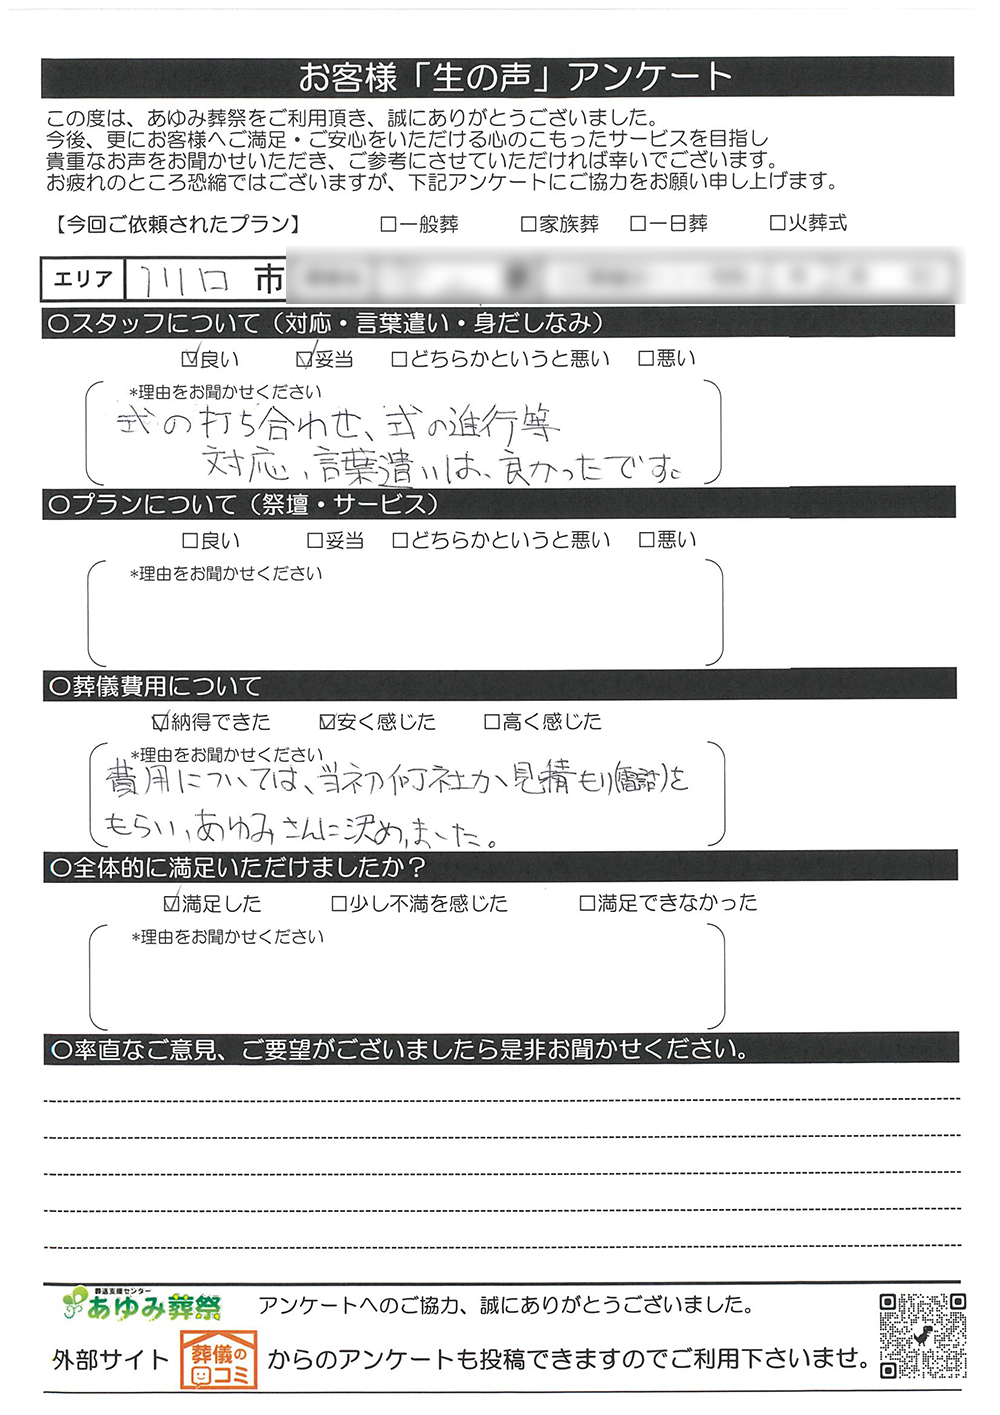 お客様「生の声」アンケート
この度は、あゆみ葬祭をご利用頂き、誠にありがとうございました。
今後、更にお客様へご満足・ご安心をいただける心のこもったサービスを目指し
貴重なお声をお聞かせいただき、ご参考にさせていただければ幸いでございます。
お疲れのところ恐縮ではございますが、下記アンケートにご協力をお願い申し上げます。
【今回ご依頼されたプラン】 □一般葬 □家族葬 □一日葬 □火葬式
エリア 川口 市
〇スタッフについて(対応・言葉遣い・身だしなみ)
☑良い ☑妥当 □どちらかというと悪い □悪い
*理由をお聞かせください
式の打ち合わせ、式の進行等
対応、言葉遣いは、良かったです。
〇プランについて(祭壇・サービス)
□良い □妥当 □どちらかというと悪い □悪い
*理由をお聞かせください
〇葬儀費用について
☑納得できた ☑安く感じた □高く感じた
*理由をお聞かせください
費用については、当初何社か見積もり(電話)を
もらい、あゆみさんに決めました。
〇全体的に満足いただけましたか？
☑満足した □少し不満を感じた □満足できなかった
*理由をお聞かせください
〇率直なご意見、ご要望がございましたら是非お聞かせください。
葬送支援センター
あゆみ葬祭 アンケートへのご協力、誠にありがとうございました。
外部サイト 葬儀の口コミ からのアンケートも投稿できますのでご利用下さいませ。